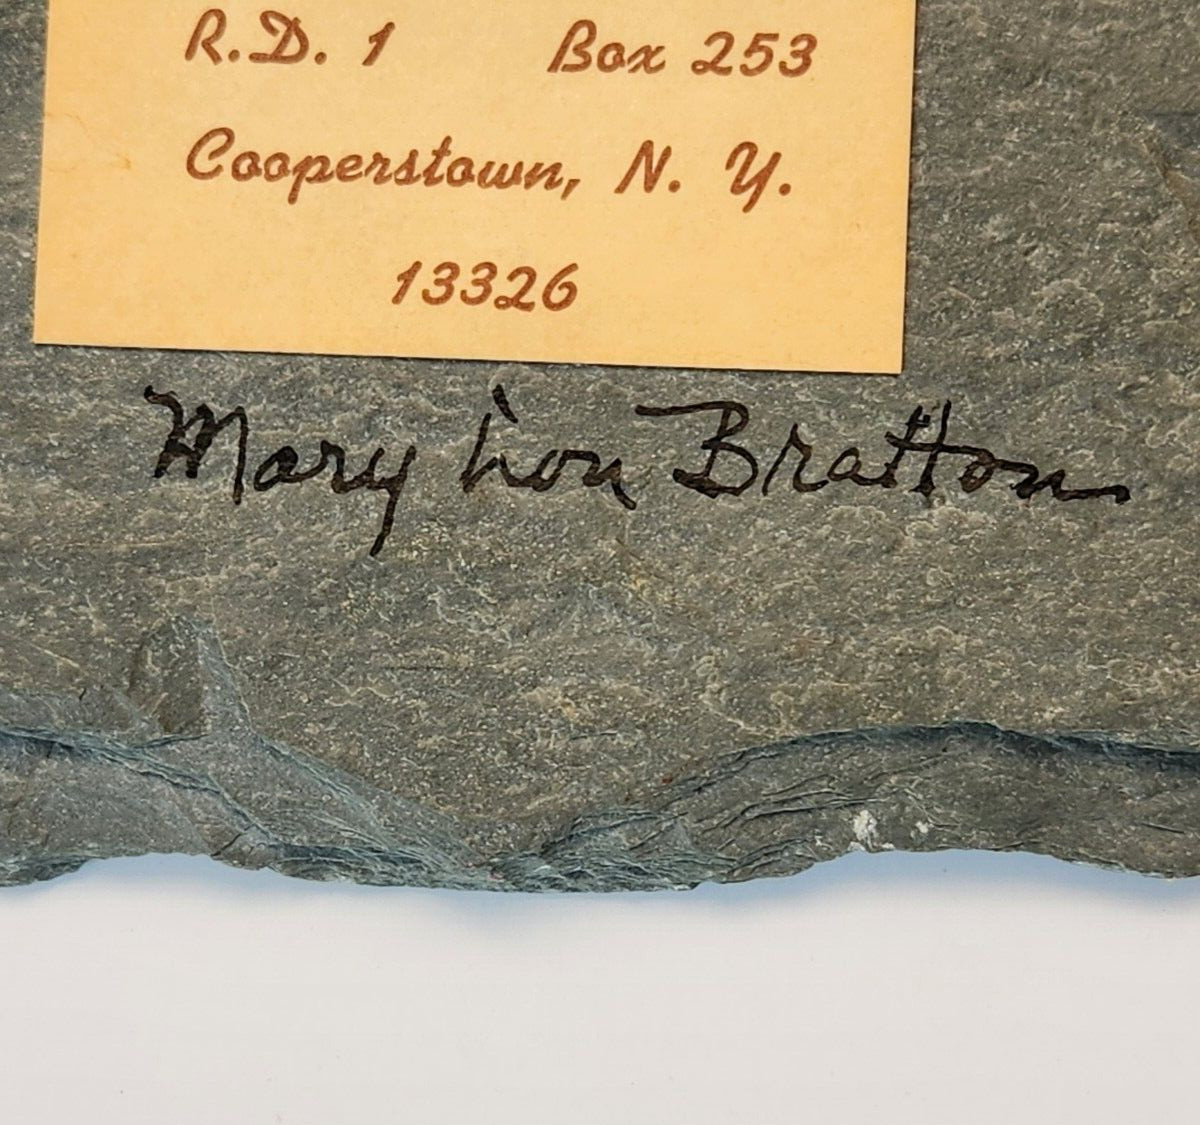 R.D. 1 Box 253
Cooperstown, N. Y.
13326
Mary Lou Bratton